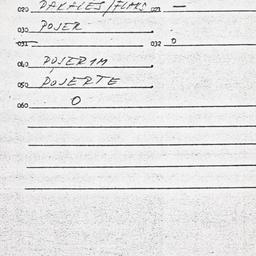 020 DAKALES/FLAKS 021 —
030 POJER
031 032 0
040 POJERIM
050 POJERTE
060 0